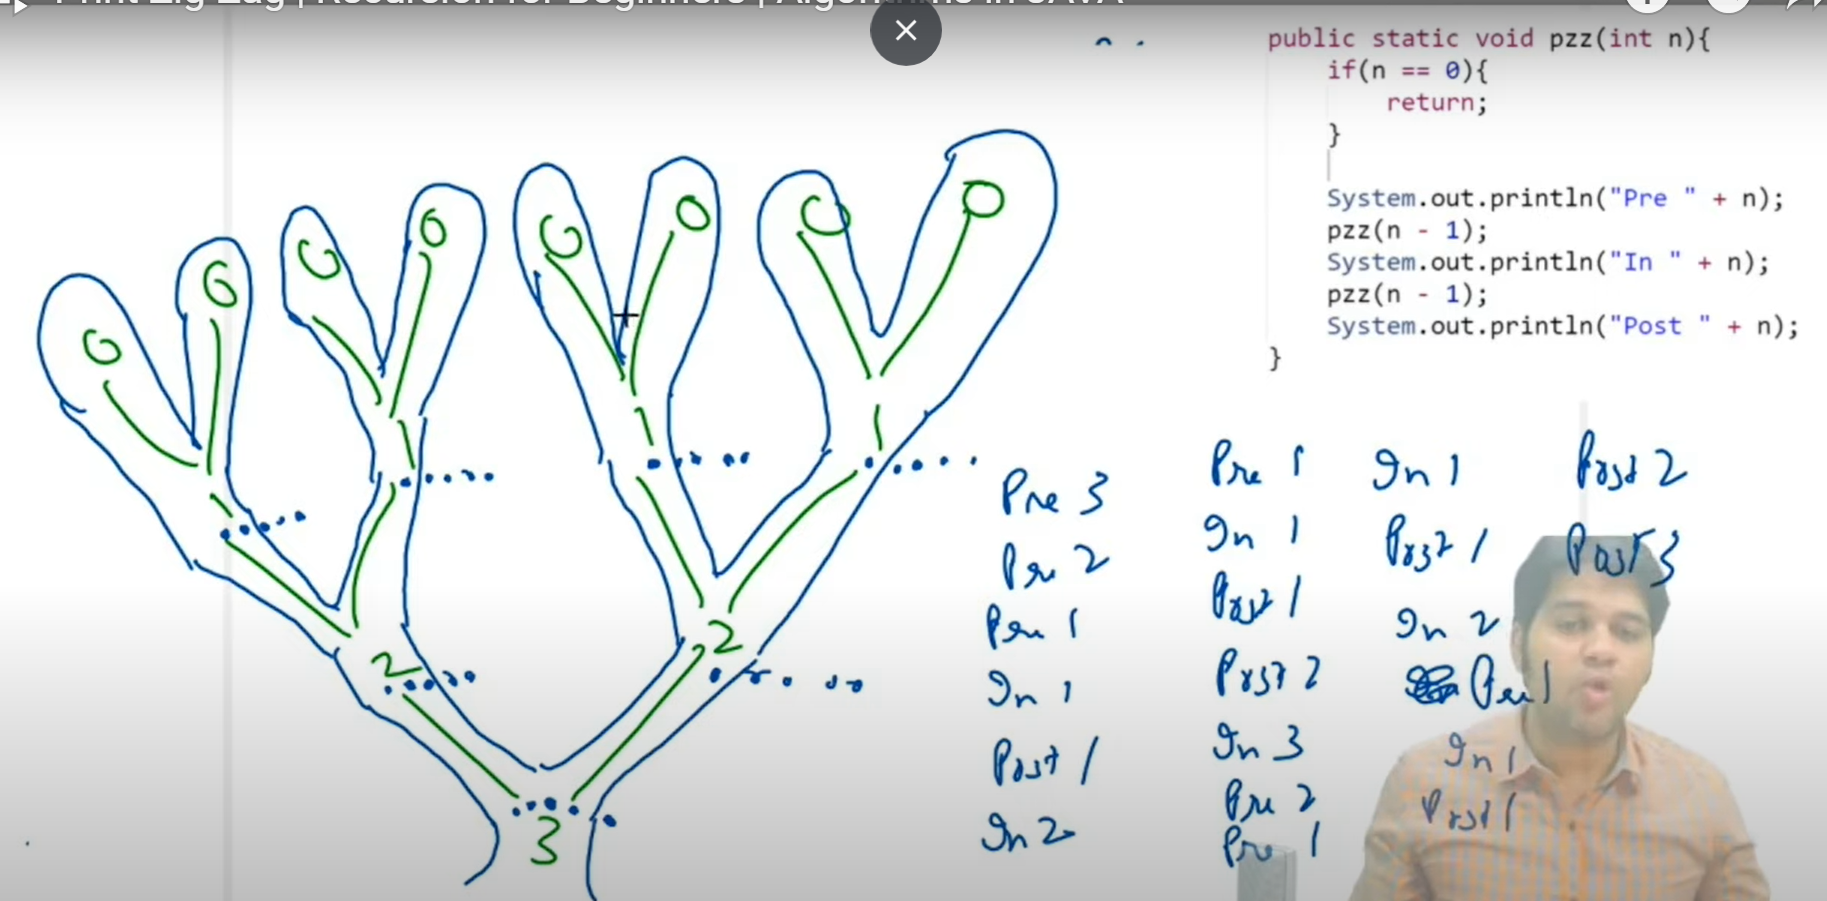 Print Zig Zag | Recursion for Beginners | Algorithms in JAVA
public static void pzz(int n){
if(n == 0){
return;
}
System.out.println("Pre " + n);
pzz(n - 1);
System.out.println("In " + n);
pzz(n - 1);
System.out.println("Post " + n);
}
0 0 0 0 0 0 0 0
1 1 1 1
2 2
3
Pre 3
Pre 2
Pre 1
In 1
Post 1
In 2
Pre 1
In 1
Post 1
Post 2
In 3
Pre 2
Pre 1
In 1
Post 1
In 2
Pre 1
In 1
Post 1
Post 2
Post 3